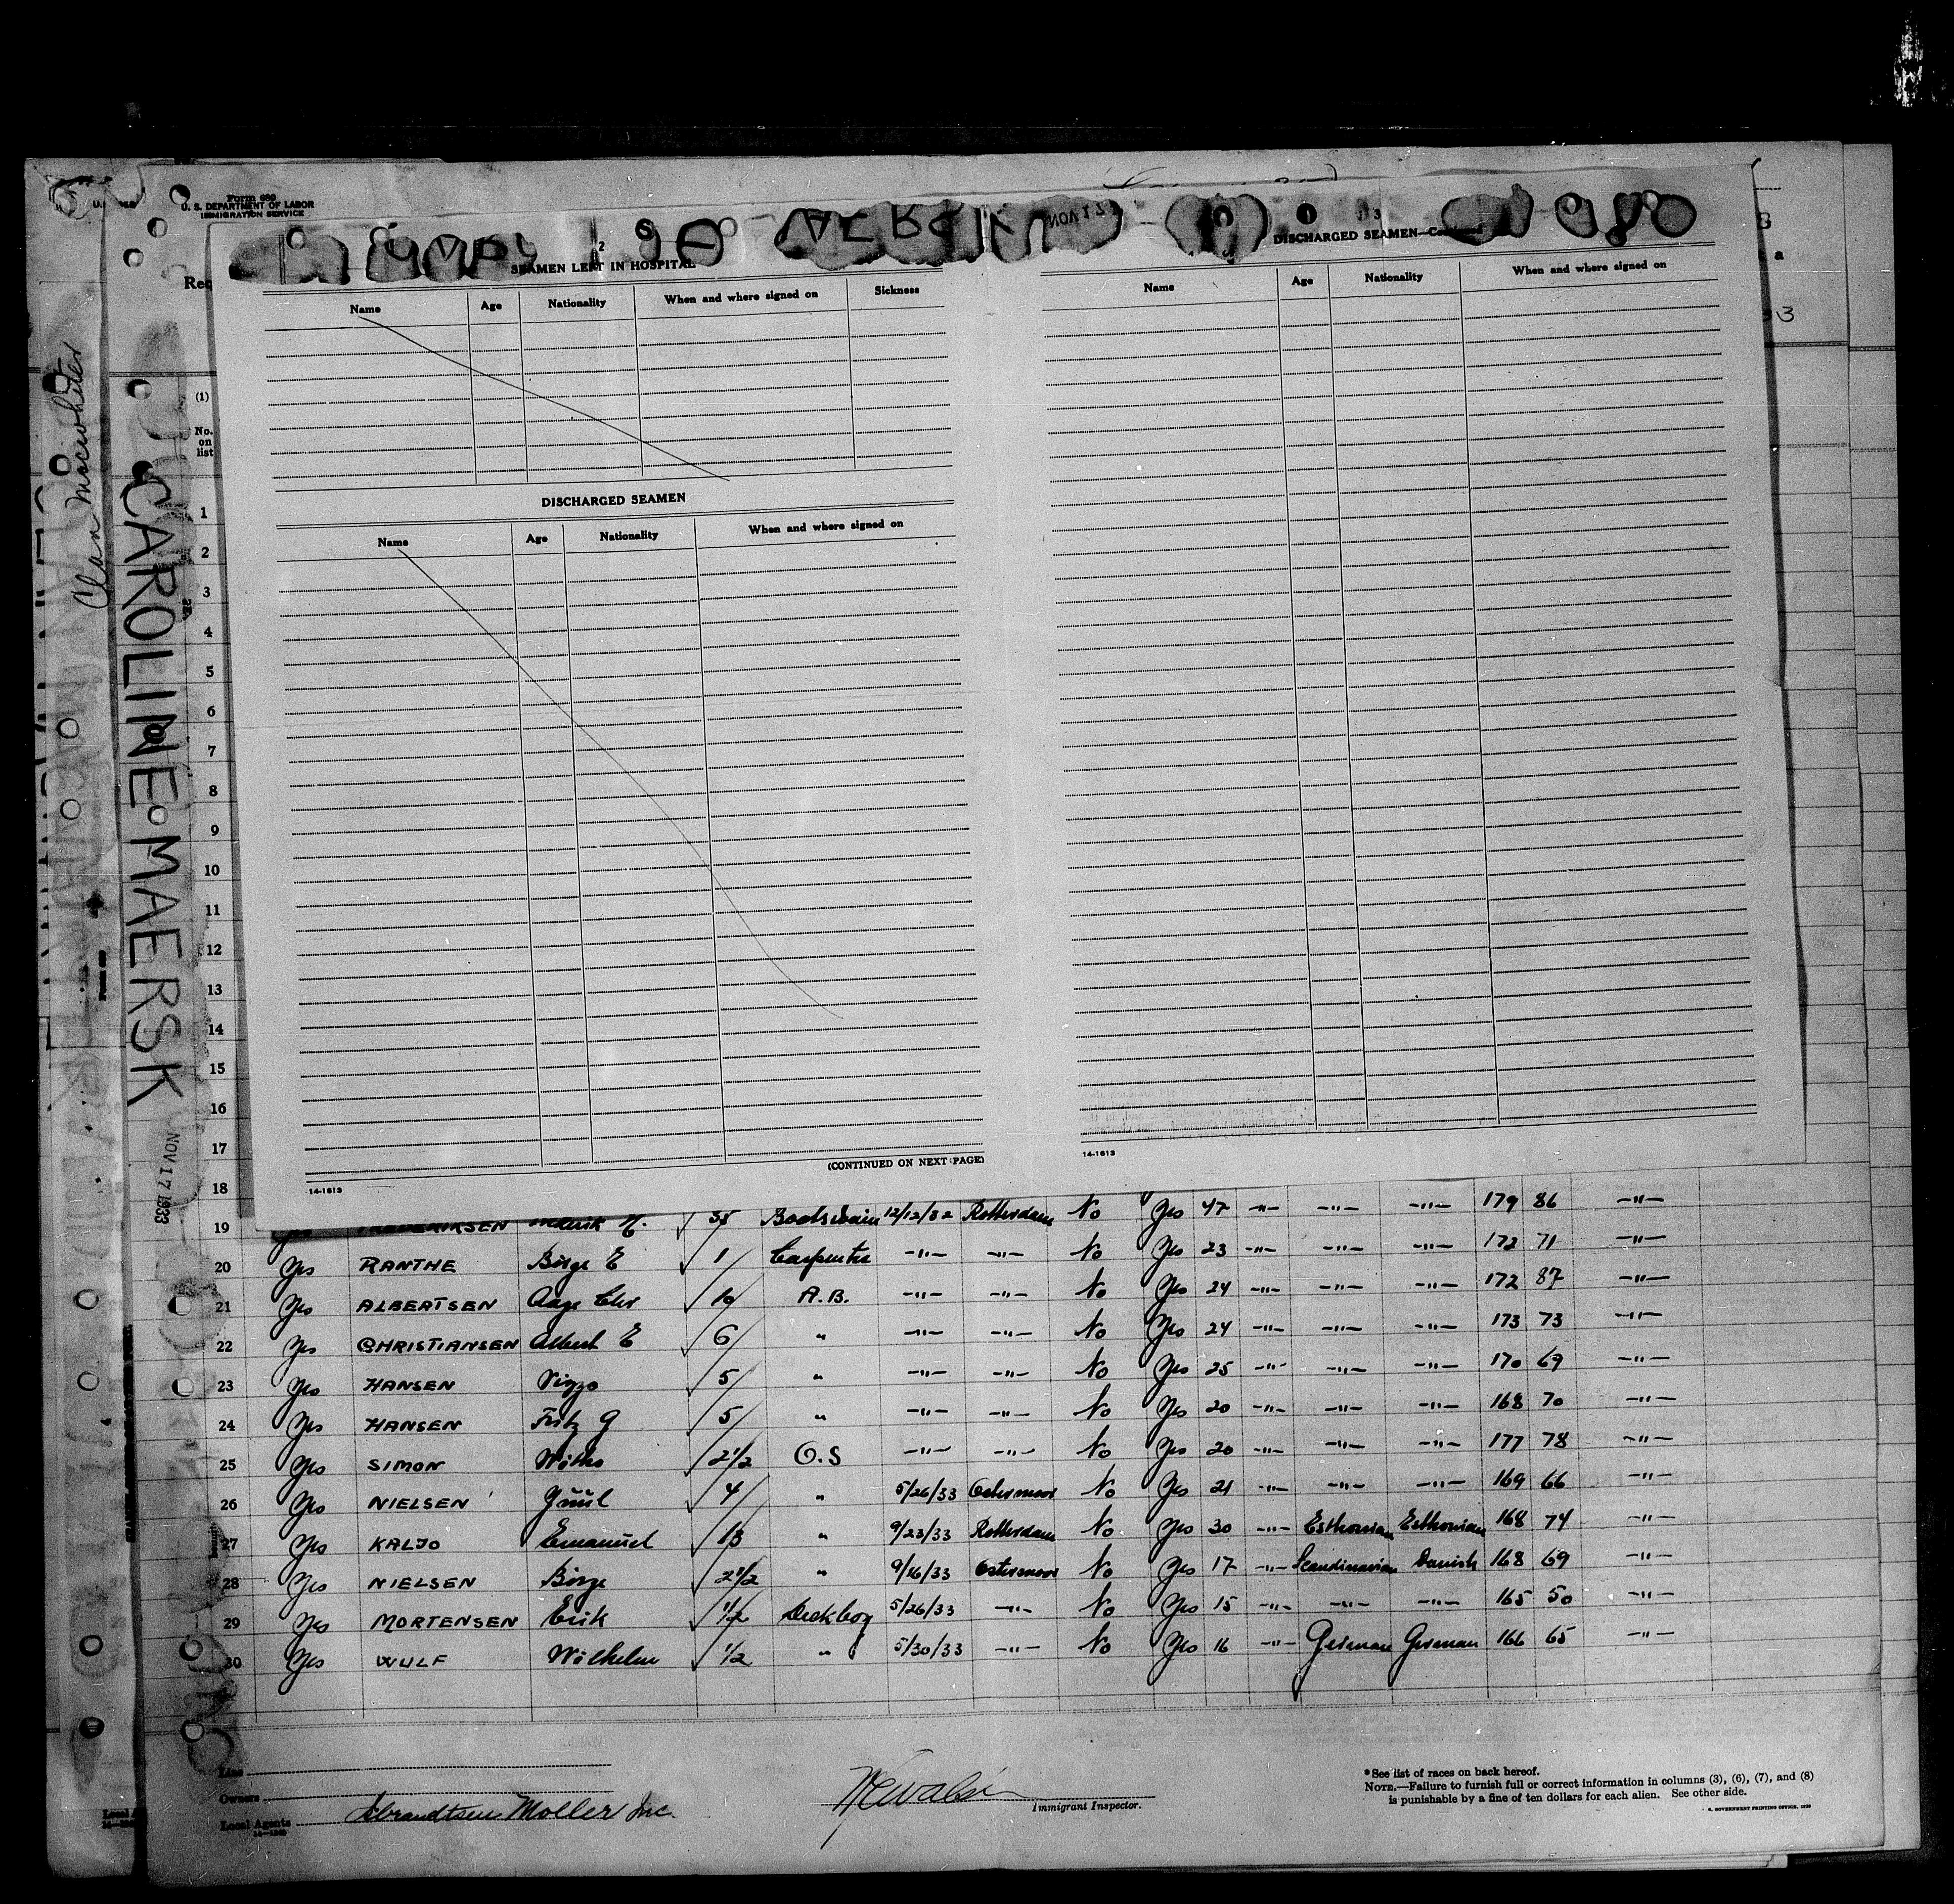 Form 680
U. S. DEPARTMENT OF LABOR
IMMIGRATION SERVICE
Clan Macwhirter
CAROLINE MAERSK
NOV 17 1933
2
SEAMEN LEFT IN HOSPITAL
Name Age Nationality When and where signed on Sickness
DISCHARGED SEAMEN
Name Age Nationality When and where signed on
(CONTINUED ON NEXT PAGE)
14-1613
3
DISCHARGED SEAMEN
Name Age Nationality When and where signed on
14-1613
(1)
No.
on
list
1
2
3
4
5
6
7
8
9
10
11
12
13
14
15
16
17
18
19 FREDERIKSEN 35 Boatswain 12/12/32 Rotterdam No Yes 47 -"- -"- -"- 179 86 -"-
20 Yes RANTHE Börge E 1 Carpenter -"- -"- No Yes 23 -"- -"- -"- 172 71 -"-
21 Yes ALBERTSEN Aage Chr 10 A.B. -"- -"- No Yes 24 -"- -"- -"- 172 87 -"-
22 Yes CHRISTIANSEN Albert E 6 " -"- -"- No Yes 24 -"- -"- -"- 173 73 -"-
23 Yes HANSEN Viggo 5 " -"- -"- No Yes 25 -"- -"- -"- 170 69 -"-
24 Yes HANSEN Fritz G 5 " -"- -"- No Yes 20 -"- -"- -"- 168 70 -"-
25 Yes SIMON 2 1/2 O.S -"- -"- No Yes 20 -"- -"- -"- 177 78 -"-
26 Yes NIELSEN Juul 4 " 5/26/33 Ostermoor No Yes 21 -"- -"- -"- 169 66 -"-
27 Yes KALJO Emanuel 13 " 9/23/33 Rotterdam No Yes 30 -"- Esthonian Esthonian 168 74 -"-
28 Yes NIELSEN Börge 2 1/2 " 9/16/33 Ostermoor No Yes 17 -"- Scandinavian Danish 168 69 -"-
29 Yes MORTENSEN Erik 1/2 Deckboy 5/26/33 -"- No Yes 15 -"- -"- -"- 165 50 -"-
30 Yes WULF Wilhelm 1/2 " 5/30/33 -"- No Yes 16 -"- German German 166 65 -"-
Line
Owners
Local Agents Isbrandtsen Moller Inc.
Immigrant Inspector.
*See list of races on back hereof.
NOTE.—Failure to furnish full or correct information in columns (3), (6), (7), and (8)
is punishable by a fine of ten dollars for each alien. See other side.